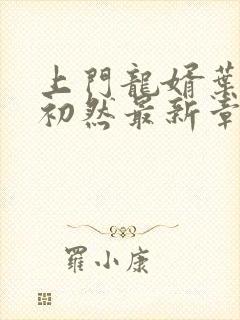 上門龍婿葉
初然最新章
羅小康